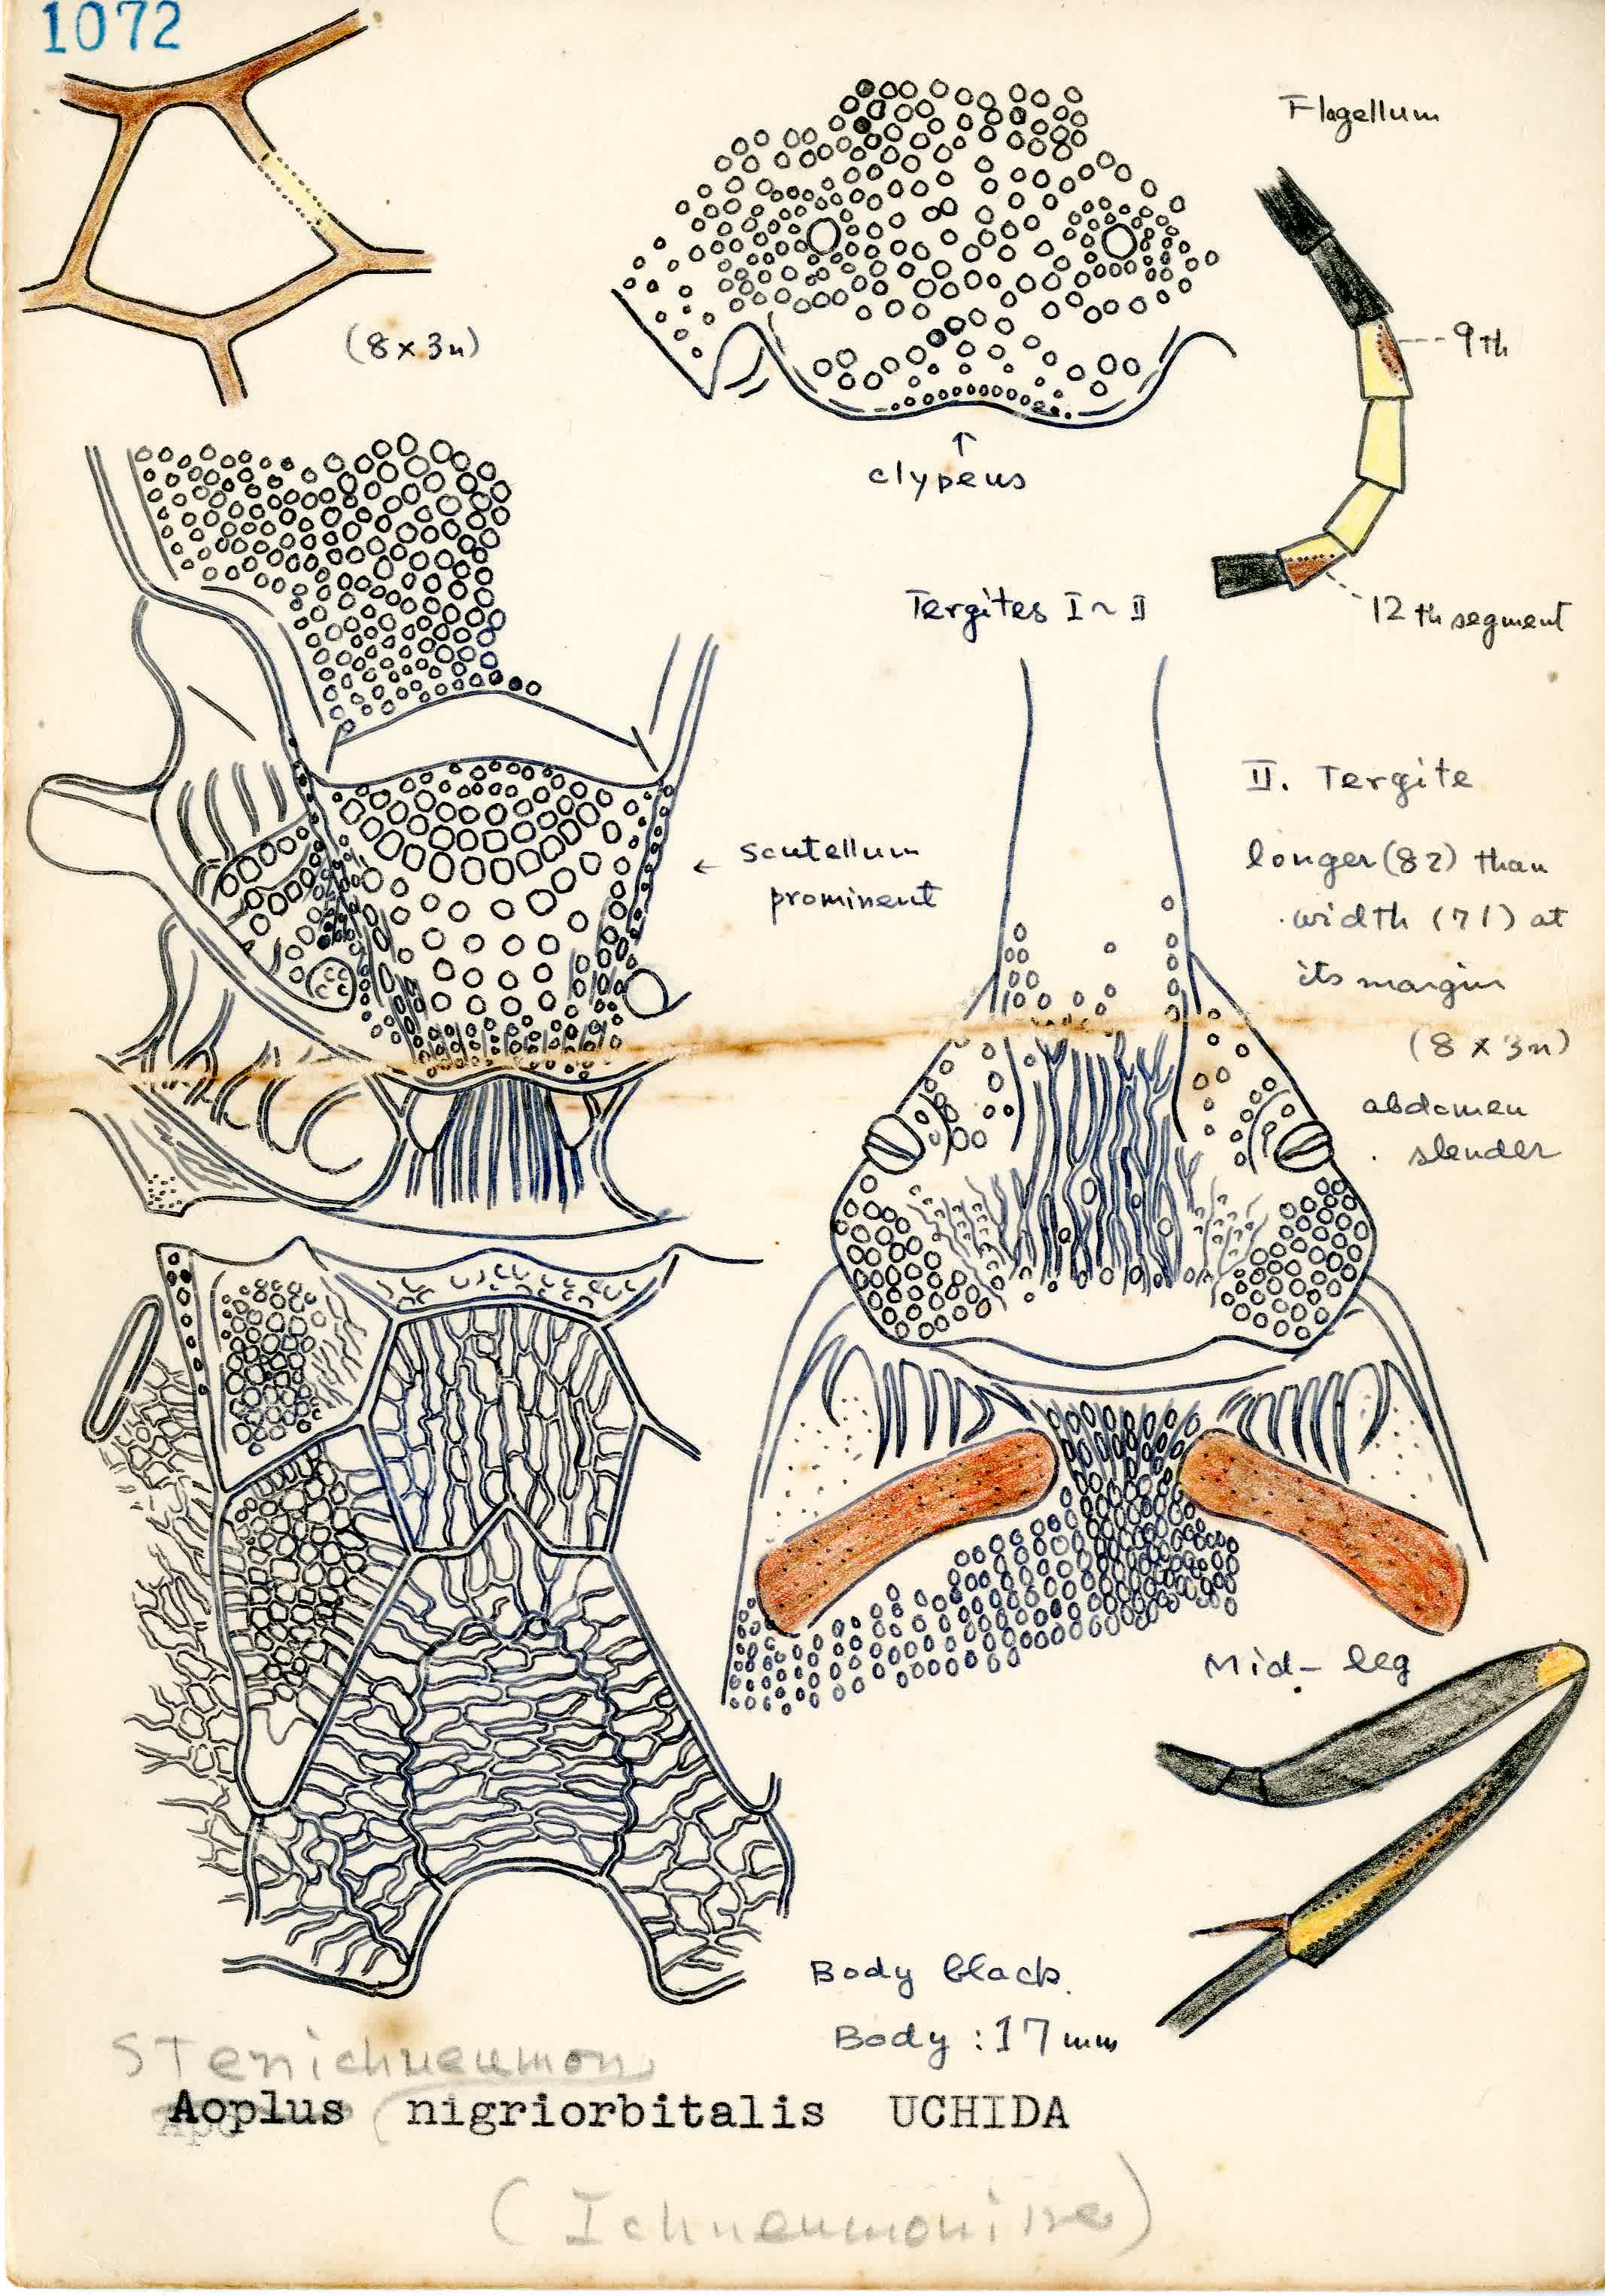 1072
(8 x 3n)
Flagellum
9th
clypeus
12 th segment
Tergites I ~ II
II. Tergite
longer (82) than
width (71) at
its margin
(8 x 3n)
abdomen
slender
scutellum
prominent
Mid-leg
Body black.
Body : 17 mm
Stenichneumon
Aoplus nigriorbitalis UCHIDA
(Ichneumoninae)